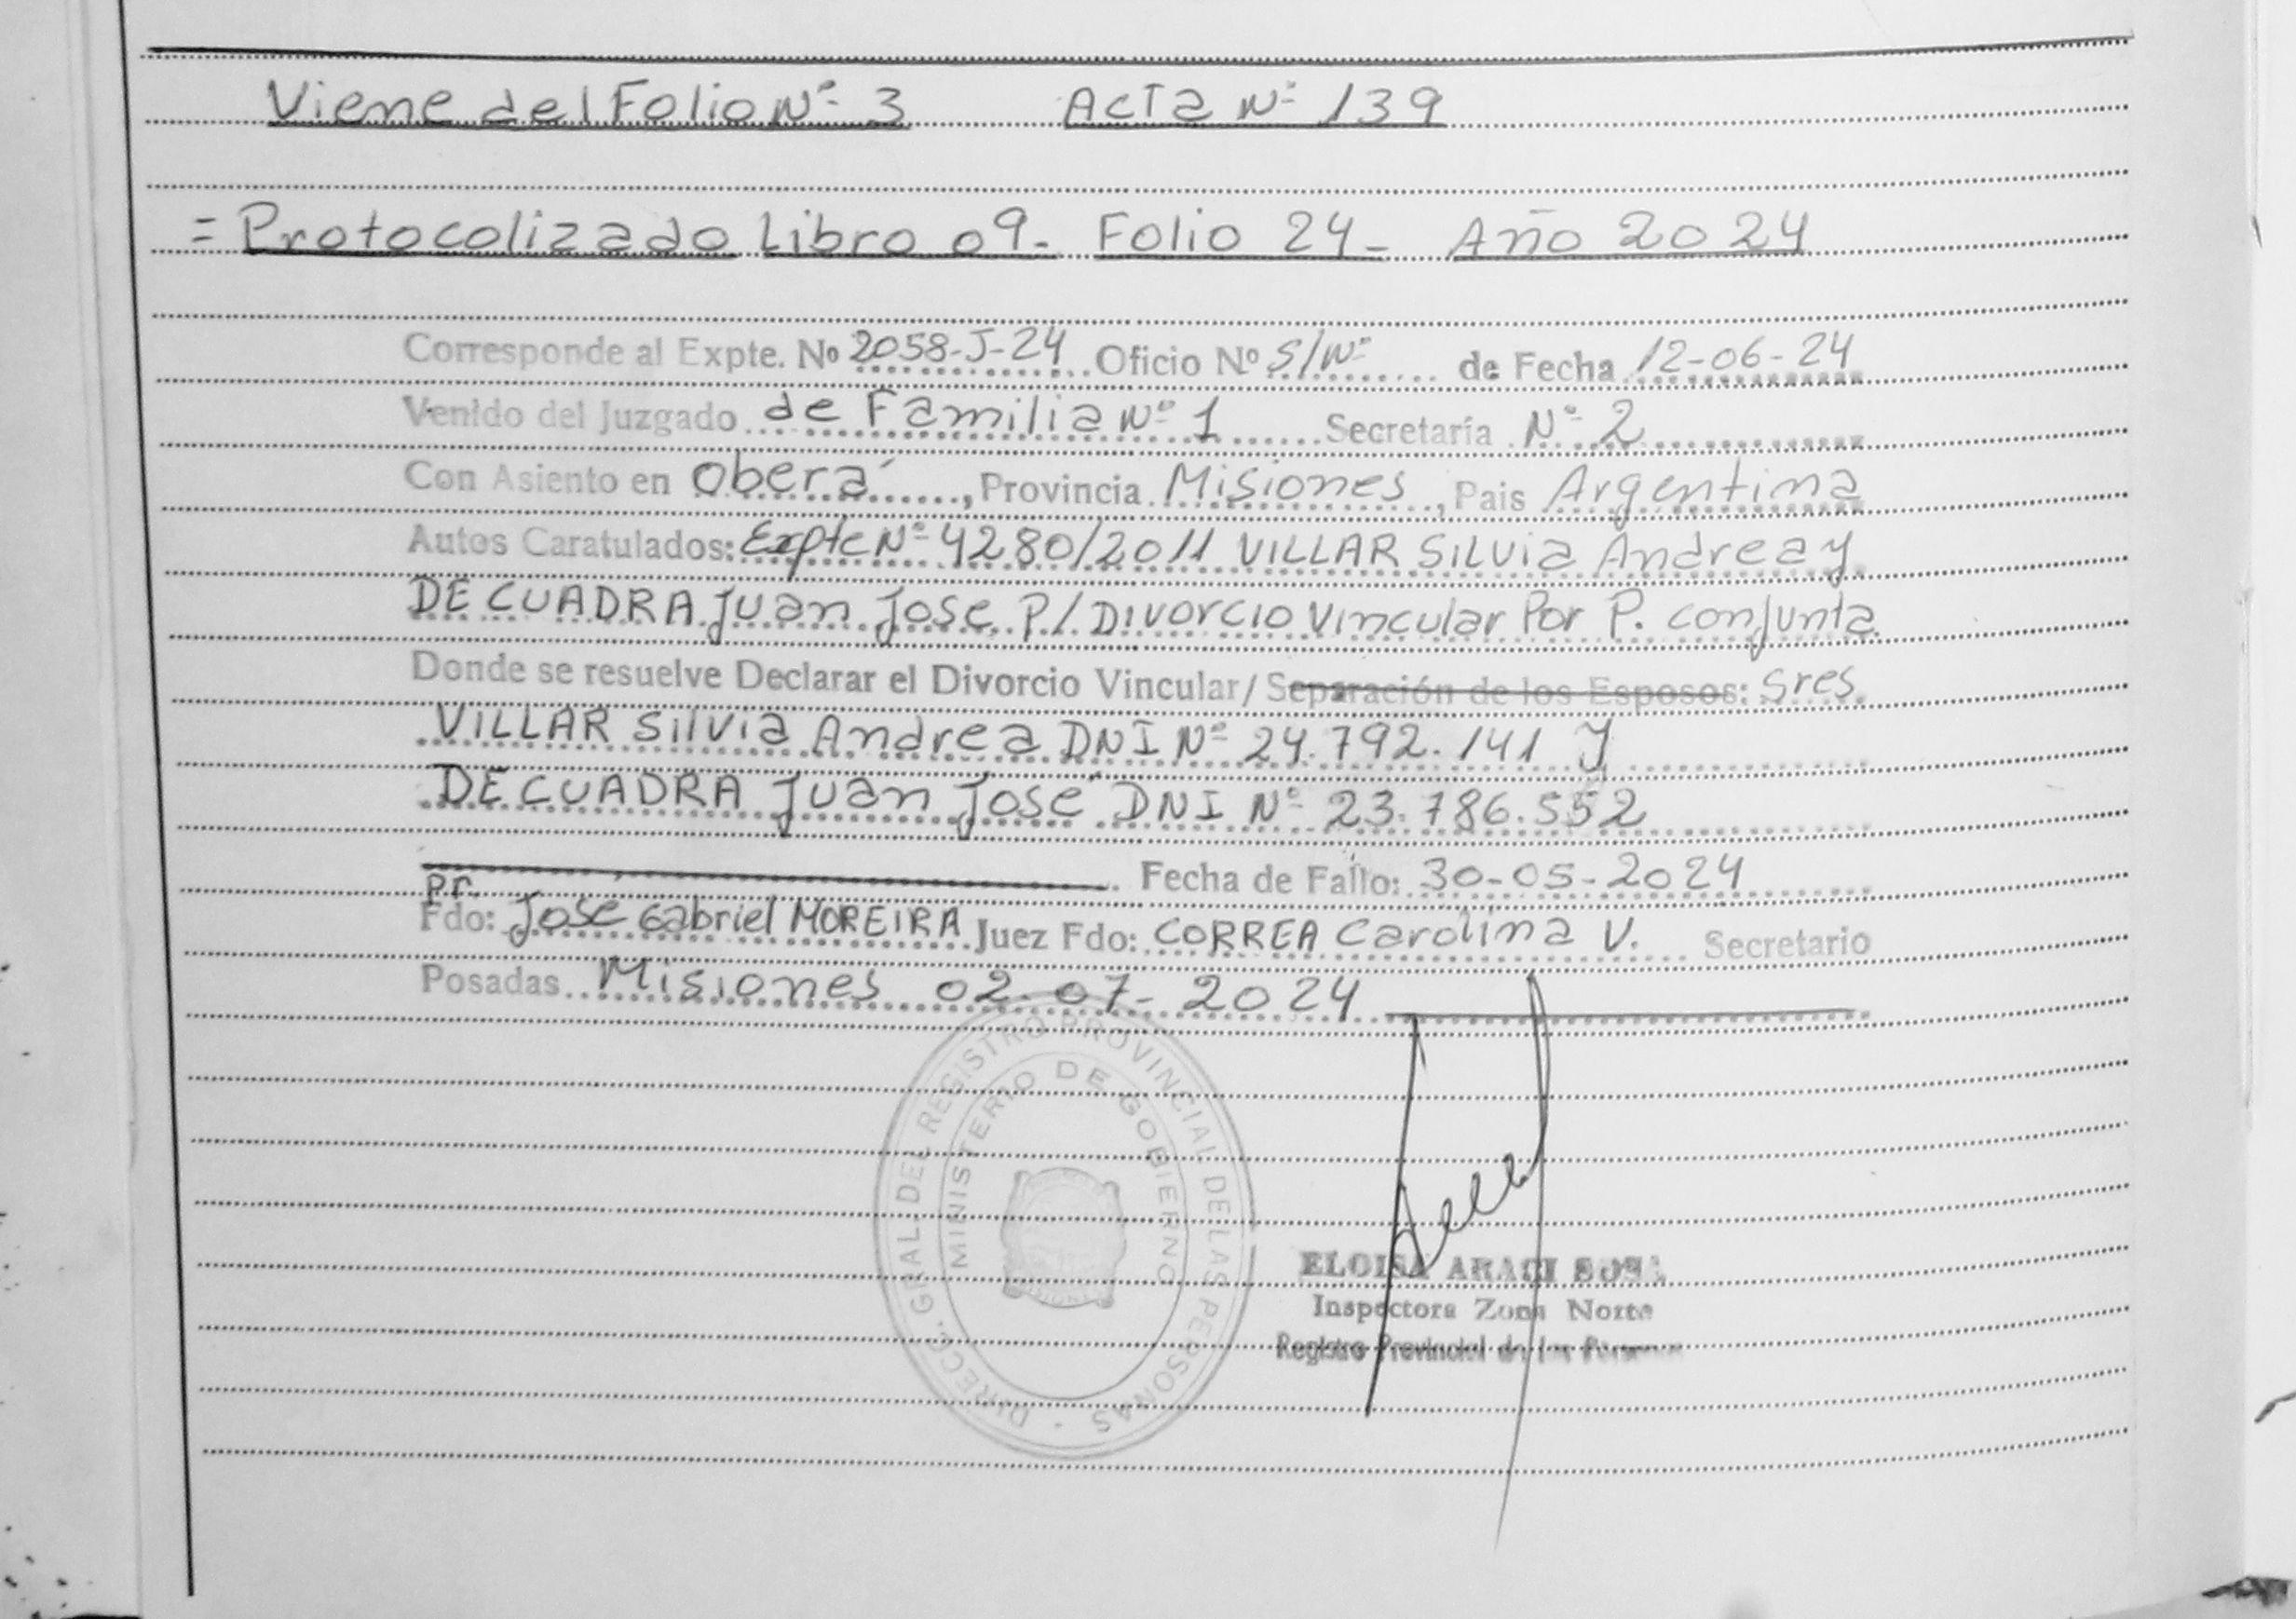 Viene del Folio Nº 3 Acta Nº 139
= Protocolizado Libro 09- Folio 24- Año 2024
Corresponde al Expte. Nº 2058-J-24 Oficio Nº S/Nº de Fecha 12-06-24
Venido del Juzgado de Familia Nº 1 Secretaría Nº 2
Con Asiento en Oberá, Provincia Misiones, Pais Argentina
Autos Caratulados: Expte Nº 4280/2011 VILLAR SILVia Andrea y
DE CUADRA Juan Jose P/ Divorcio Vincular Por P. conjunta
Donde se resuelve Declarar el Divorcio Vincular/ Separación de los Esposos: Sres.
VILLAR Silvia Andrea DNI Nº 24.792.141 y
DE CUADRA Juan José DNI Nº 23.786.552
Fecha de Fallo: 30-05-2024
pr.
Fdo: Jose Gabriel MOREIRA Juez Fdo: CORREA Carolina V. Secretario
Posadas Misiones 02-07-2024
DIRECC. GRAL. DEL REGISTRO PROVINCIAL DE LAS PERSONAS -
MINISTERIO DE GOBIERNO
ELOISA ARACI SOSA
Inspectora Zona Norte
Registro Provincial de las Personas